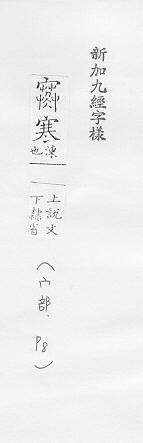 新加九經字樣
寒
凍
也
上說文
下隸省
(宀部. P8)